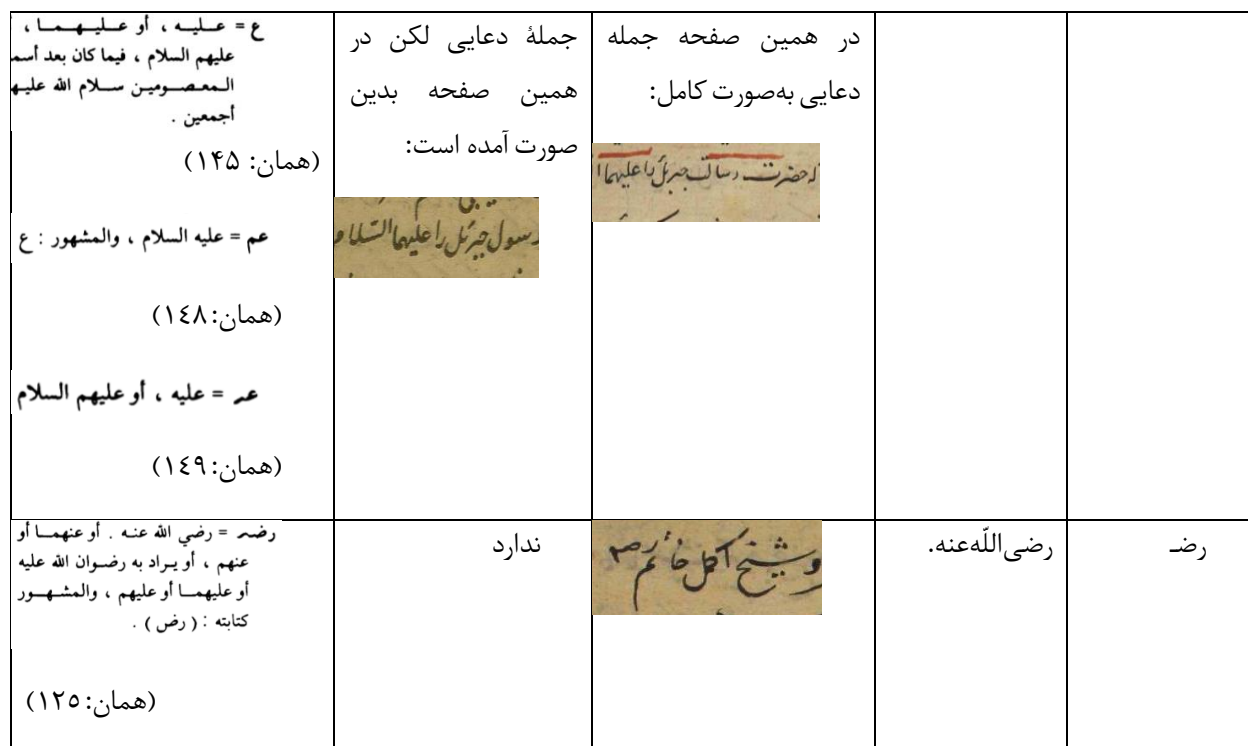 در همین صفحه جمله
دعایی به‌صورت کامل:
حضرت رسالت جبرئل را علیهما ا
جملهٔ دعایی لکن در
همین صفحه بدین
صورت آمده است:
رسول جبرئل را علیهما السّلام
ع = عـليـه ، أو عـليـهـمـا ،
عليهم السلام ، فيما كان بعد أسمـ
الـمعـصـومـين سـلام الله عليـهـ
أجمعين .
(همان: ۱۴۵)
عم = عليه السلام ، والمشهور : ع
(همان:١٤٨)
عـ = عليه ، أو عليهم السلام
(همان:١٤٩)
رضـ
رضی‌اللّه‌عنه.
و شیخ اکمل
ندارد
رضـ = رضي الله عنـه . أو عنهمـا أو
عنهم ، أو يـراد به رضـوان الله عليه
أو عليهمـا أو عليهم ، والمشـهـور
كتابته : ( رض ) .
(همان:١٢٥)